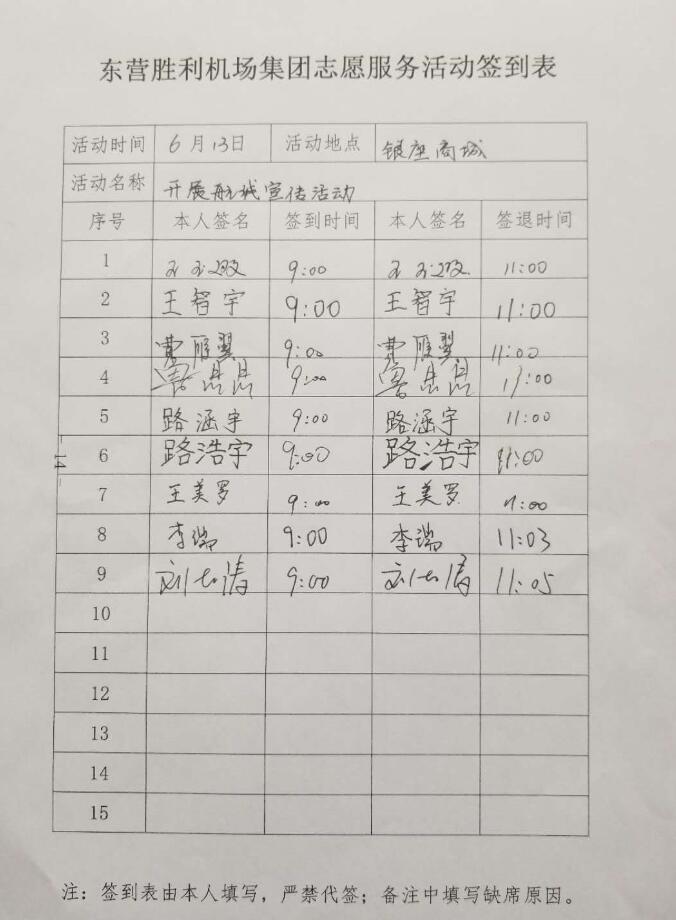 东营胜利机场集团志愿服务活动签到表
活动时间 6月13日 活动地点 银座商城
活动名称 开展航城宣传活动
序号 本人签名 签到时间 本人签名 签退时间
1 9:00 11:00
2 王智宇 9:00 王智宇 11:00
3 费雁翼 9:00 费雁翼 11:00
4 9:00 11:00
5 路涵宇 9:00 路涵宇 11:00
6 路浩宇 9:00 路浩宇 11:00
7 王美罗 9:00 王美罗 11:00
8 李瑞 9:00 李瑞 11:03
9 9:00 11:05
10
11
12
13
14
15
- 14 -
注：签到表由本人填写，严禁代签；备注中填写缺席原因。